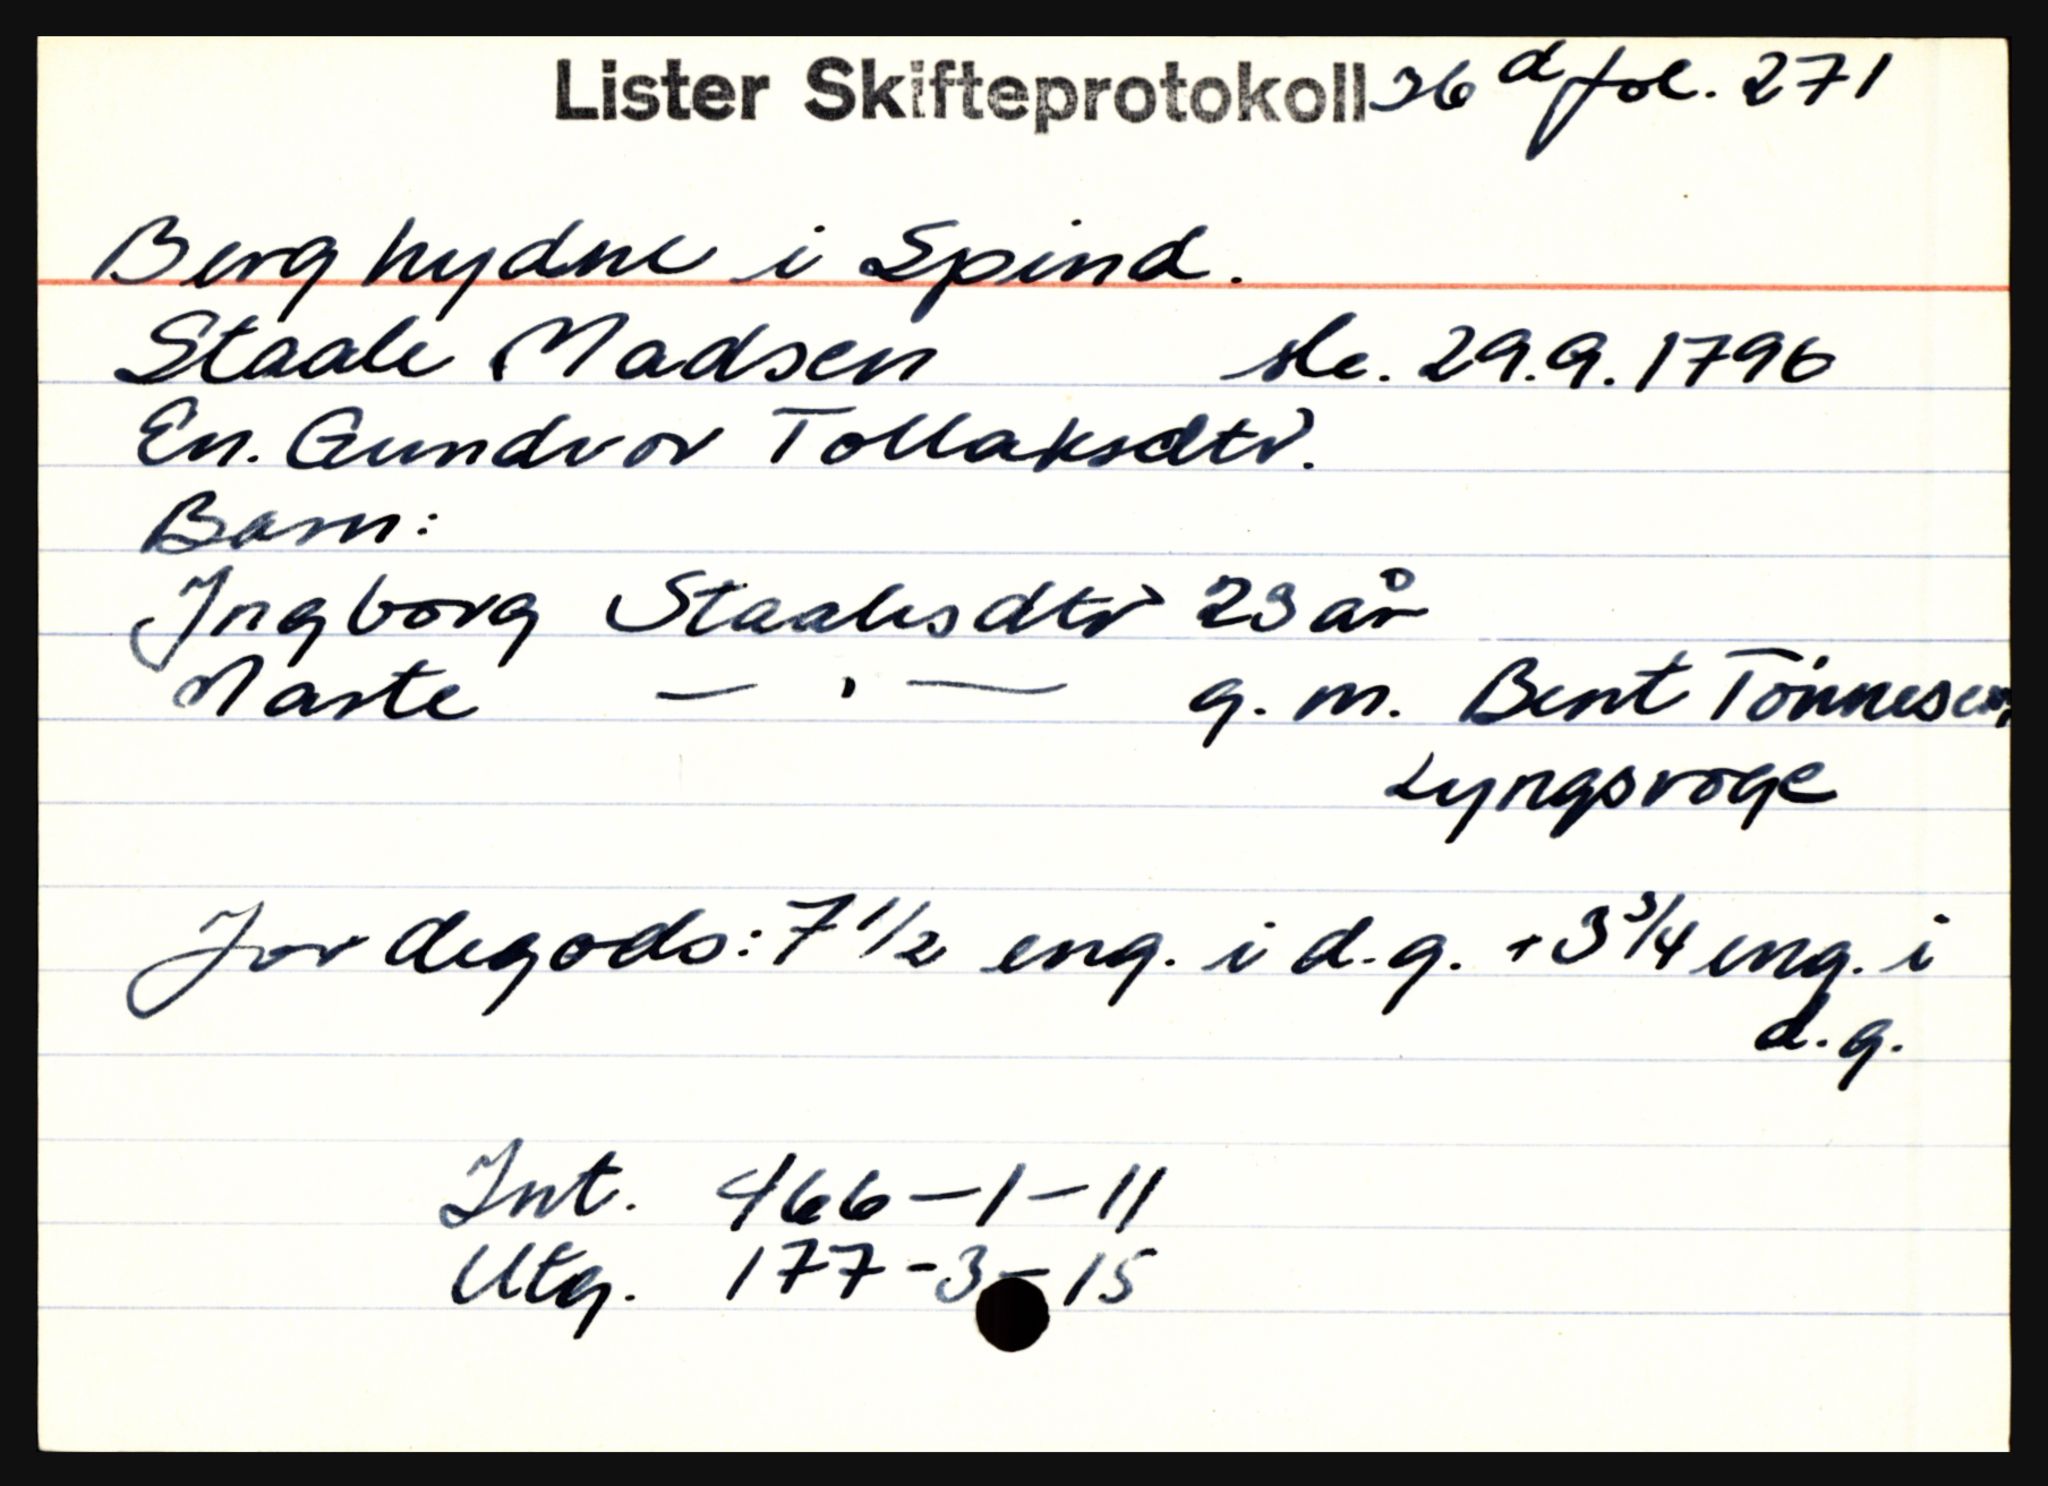 Lister Skifteprotokoll 36 d fol. 271
Berghydne i Spind.
Staale Madsen ske. 29.9.1796
En. Gundvor Tollaksdtr.
Barn:
Ingborg Staalesdtr 23 år
Marte — " — g. m. Bent Tönnesen,
Lyngsvoge
Jordegods: 7 1/2 eng. i d.g. + 3 3/4 eng. i
d.g.
Int. 466-1-11
Utg. 177-3-15